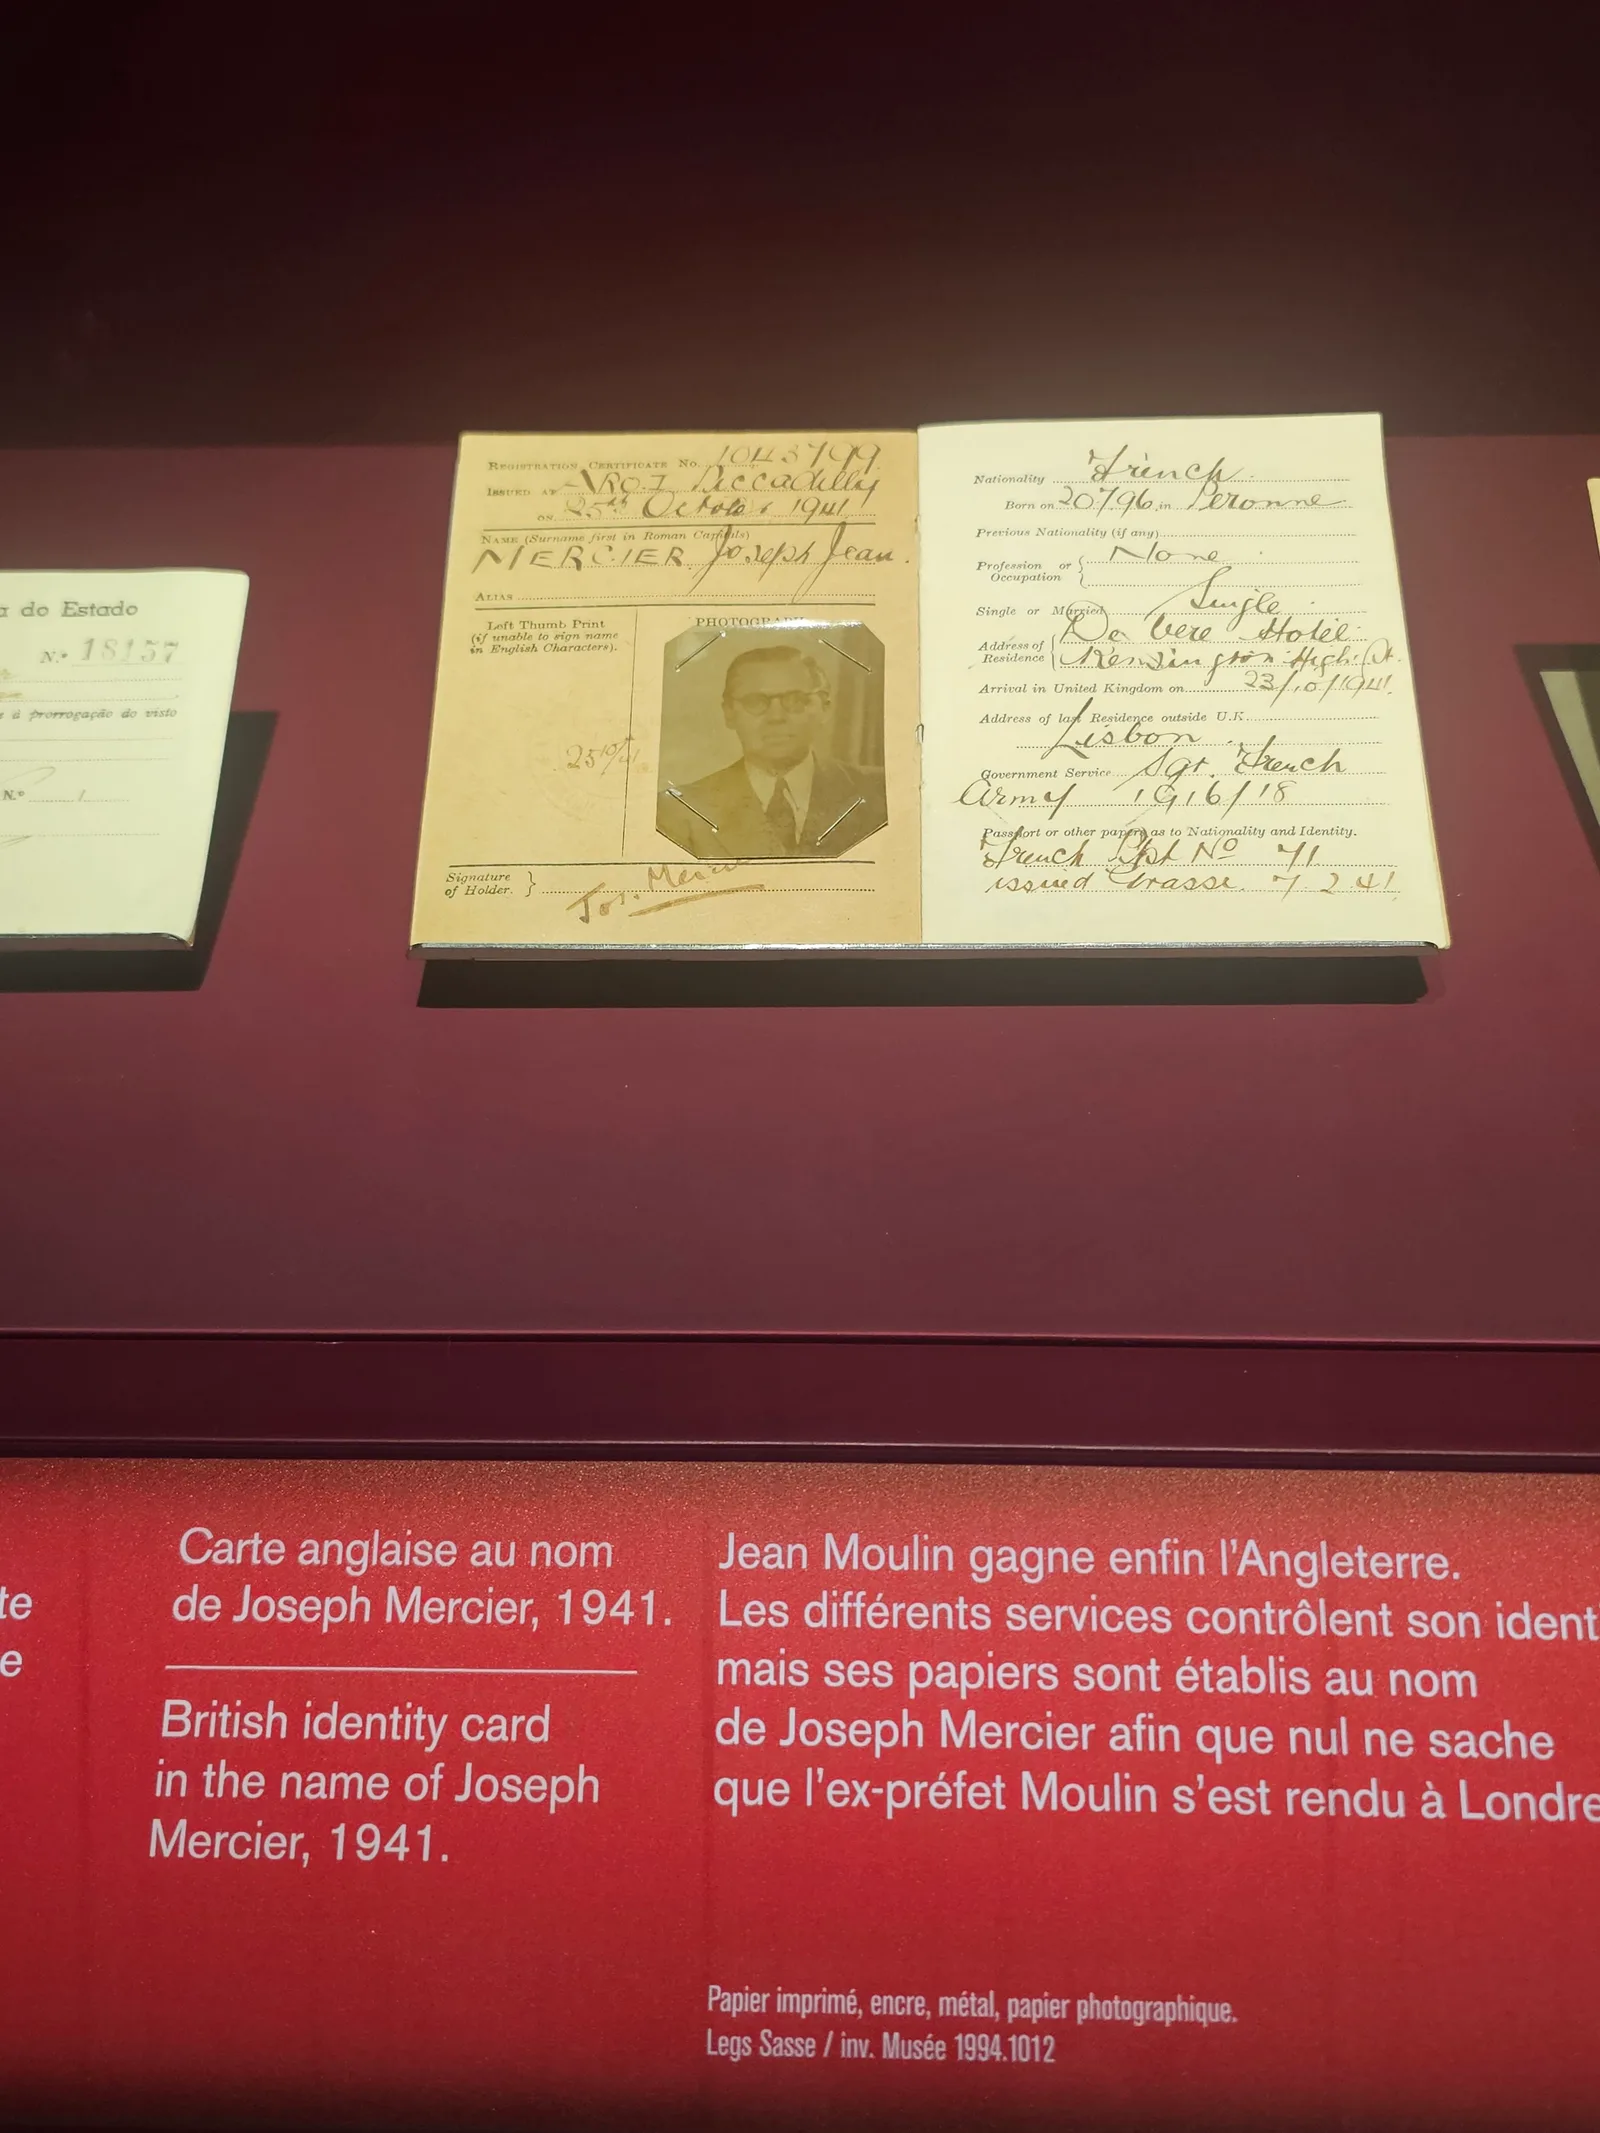 a do Estado
N.º 18157
e à prorrogação do visto
N.º
REGISTRATION CERTIFICATE No. 1043799
ISSUED AT ARO.I Piccadilly
ON 25th October 1941
NAME (Surname first in Roman Capitals)
MERCIER Joseph Jean.
ALIAS
Left Thumb Print
(if unable to sign name
in English Characters).
PHOTOGRAPH
25/10/41
Signature
of Holder.
Jos. Mercier
Nationality French
Born on 20/7/96 in Peronne
Previous Nationality (if any)
Profession or
Occupation
None
Single or Married Single
Address of
Residence
De Vere Hotel
Kensington High St.
Arrival in United Kingdom on 23/10/1941
Address of last Residence outside U.K.
Lisbon
Government Service Sgt. French
Army 1916/18
Passport or other papers as to Nationality and Identity.
French Ppt No 71
issued Grasse. 7.2.41
te
e
Carte anglaise au nom
de Joseph Mercier, 1941.
British identity card
in the name of Joseph
Mercier, 1941.
Jean Moulin gagne enfin l'Angleterre.
Les différents services contrôlent son ident
mais ses papiers sont établis au nom
de Joseph Mercier afin que nul ne sache
que l'ex-préfet Moulin s'est rendu à Londre
Papier imprimé, encre, métal, papier photographique.
Legs Sasse / inv. Musée 1994.1012